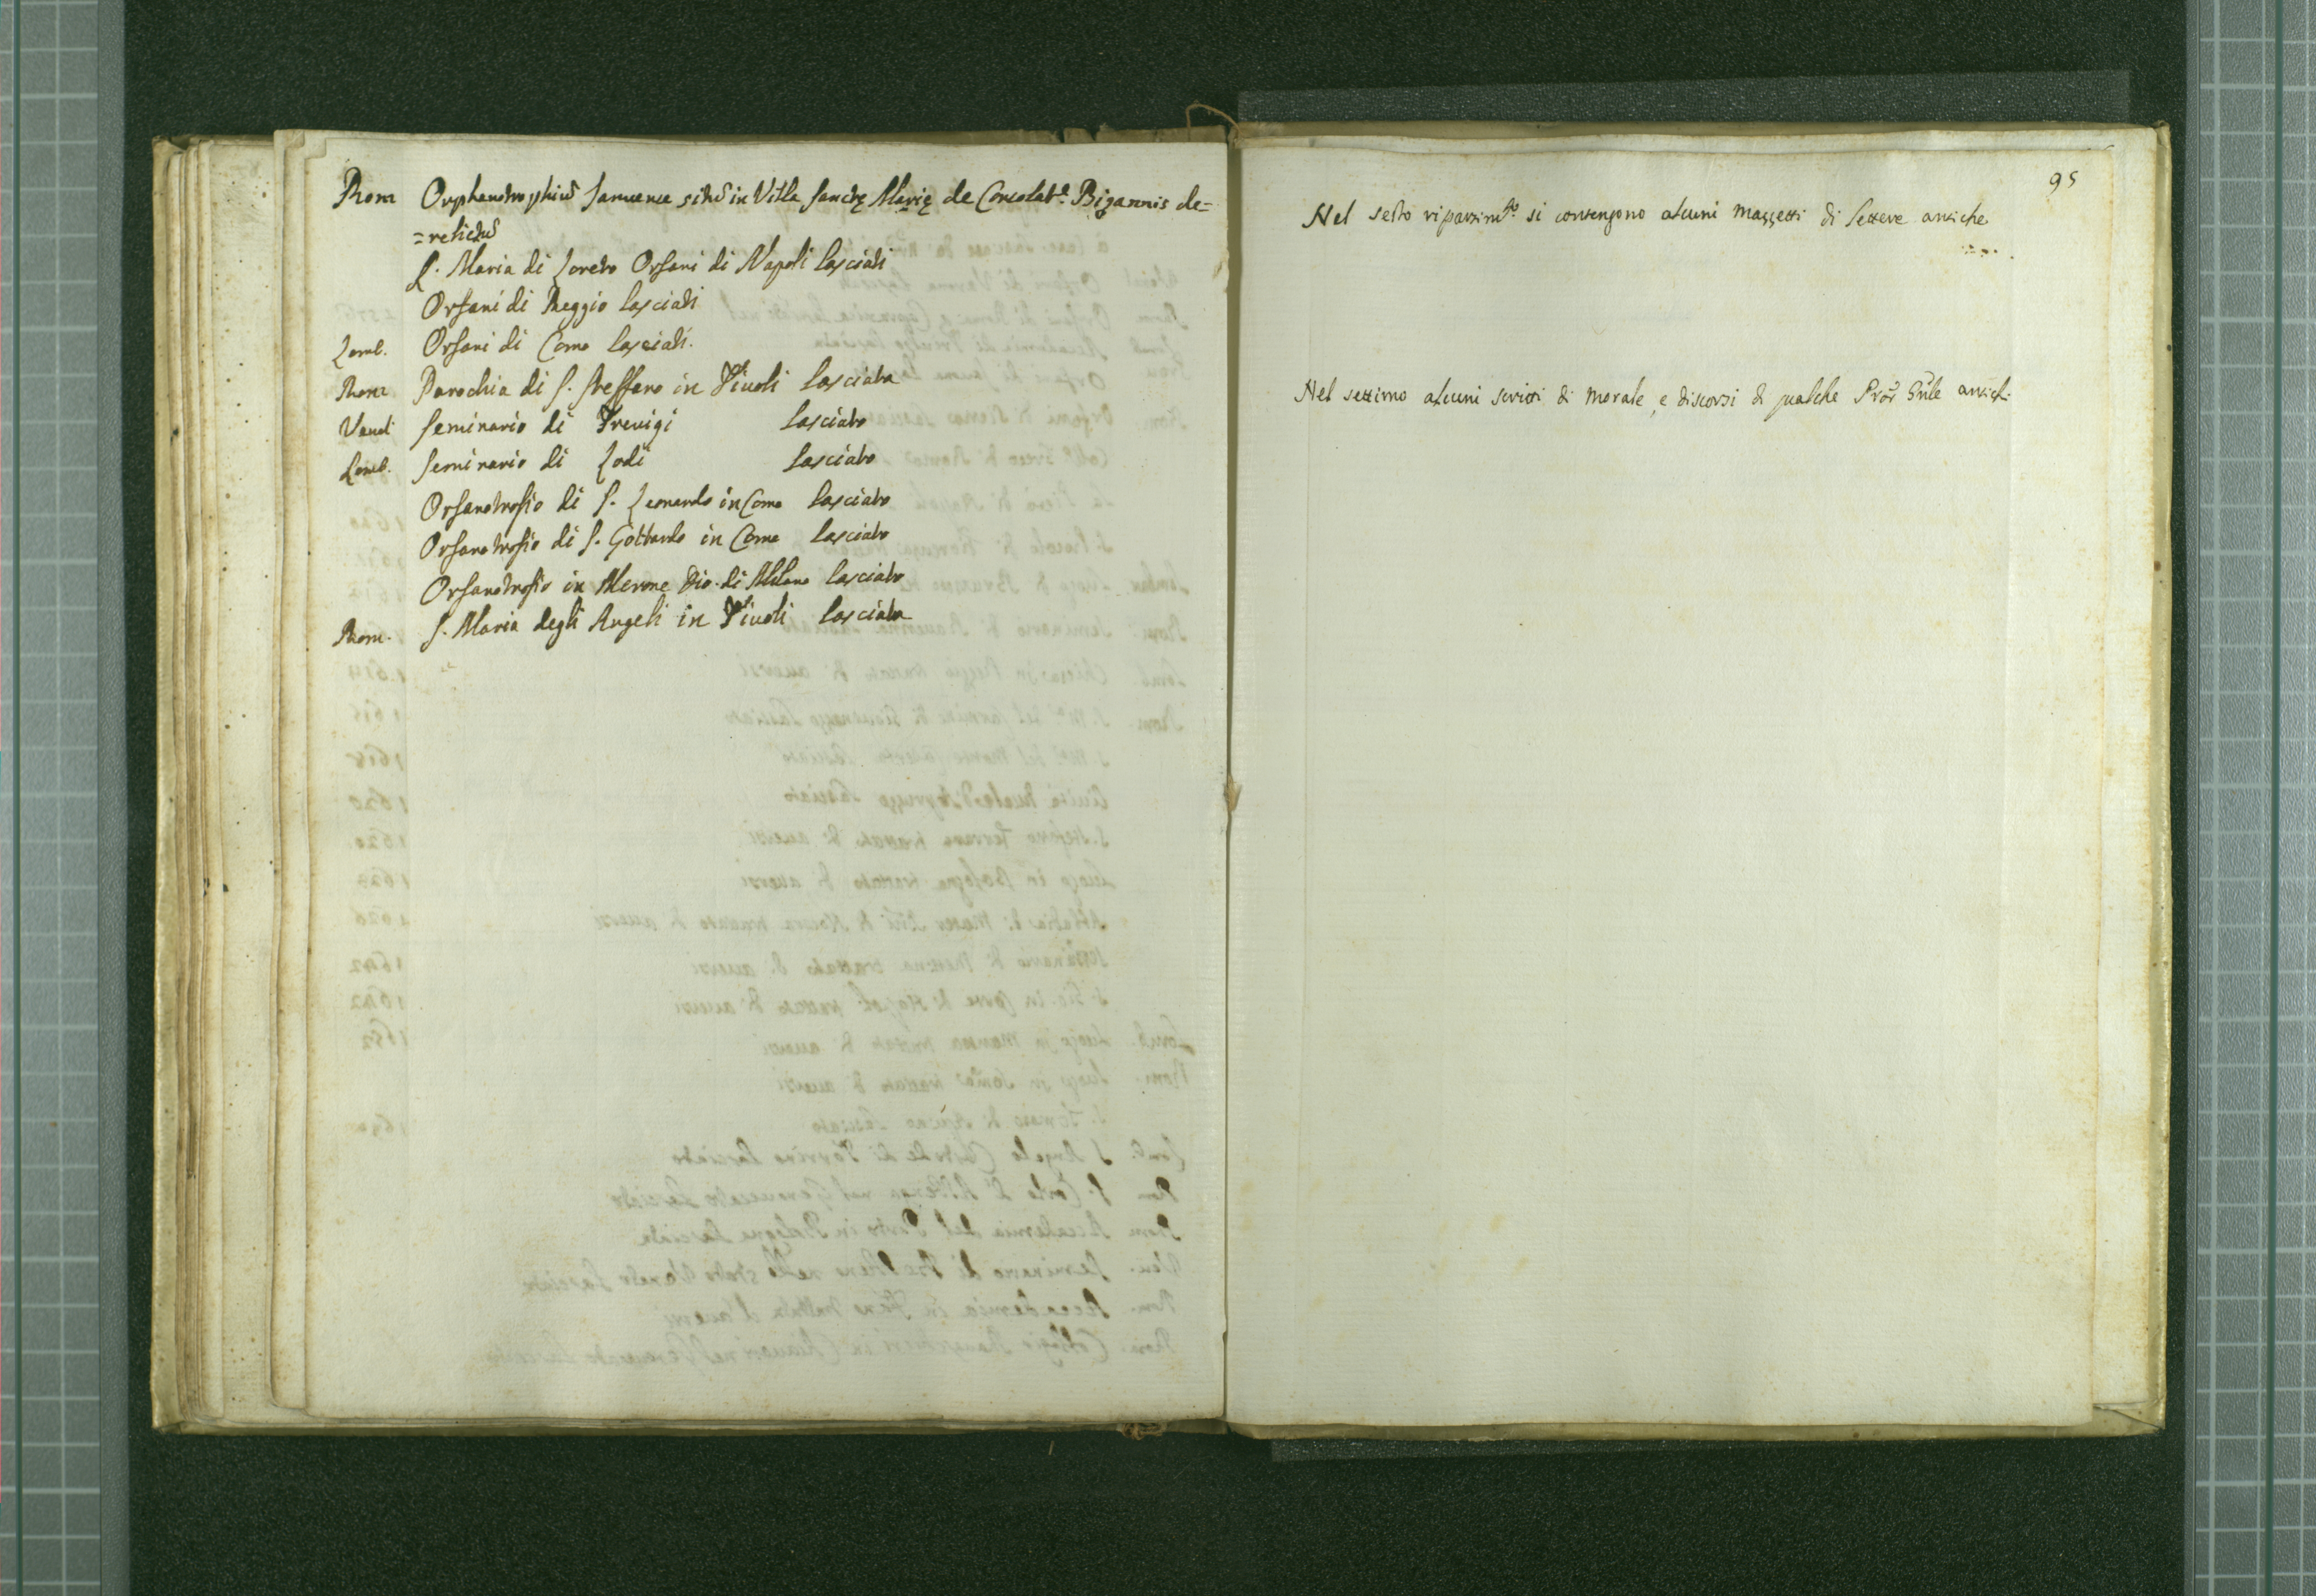 Rom Orphanotrophiū Januense sitū in Villa Sanctę Marię de Consolat.e Bigannis de=
=relictū
S. Maria di Loreto Orfani di Napoli lasciati
Orfani di Reggio lasciati
Lomb. Orfani di Como lasciati.
Rom Parochia di S. Steffano in Tivoli lasciata
Venet Seminario di Trevigi lasciato
Lomb. Seminario di Lodi lasciato
Orfanotrofio di S. Leonardo in Como lasciato
Orfanotrofio di S. Gottardo in Como lasciato
Orfanotrofio in Merone Dio. di Milano lasciato
Rom. S. Maria degli Angeli in Tivoli lasciata
95
Nel sesto ripartim.to si contengono alcuni mazzetti di lettere antiche
Nel settimo alcuni scritti di morale, e discorsi di qualche Pror Gn̄le antich.